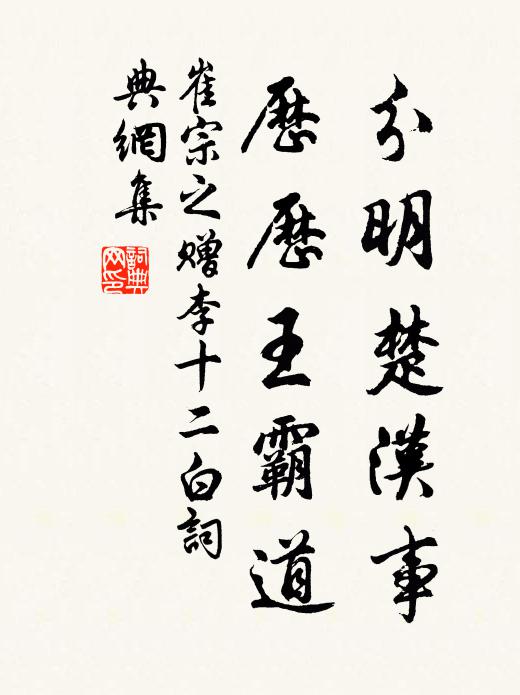 分明楚漢事
歷歷王霸道
崔宗之贈李十二白詞
典網集
詞典
网印